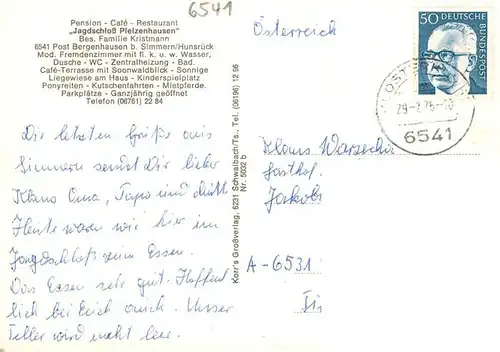 6541
Pension - Café - Restaurant
„Jagdschloß Pfalzenhausen"
Bes. Familie Kristmann
6541 Post Bergenhausen b. Simmern/Hunsrück
Mod. Fremdenzimmer mit fl. k. u. w. Wasser,
Dusche - WC - Zentralheizung - Bad.
Café-Terrasse mit Soonwaldblick - Sonnige
Liegewiese am Haus - Kinderspielplatz
Ponyreiten - Kutschenfahrten - Mietpferde.
Parkplätze - Ganzjährig geöffnet
Telefon (06761) 22 84
Die letzten Grüße aus
Simmern sendet Dir lieber
Klaus Oma, Papa und
Heute waren wir hier im
Jagdschloß zum Essen.
Das Essen sehr gut. Hoffent
lich bei Euch auch. Unser
Teller wird nicht leer.
Korr's Großverlag, 6231 Schwalbach/Ts. Tel. (06196) 12 96
Nr. 5032 b
Österreich
50 DEUTSCHE BUNDESPOST
6541
Klaus Warzecha
Gasthof
Jakob
A-6531